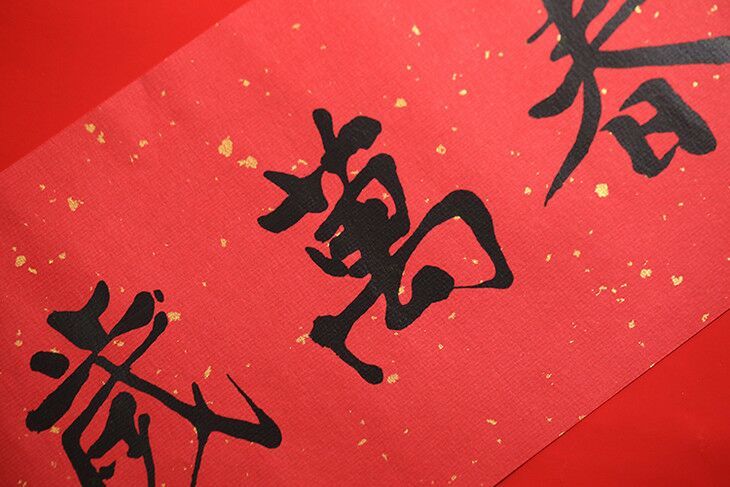 春萬歲